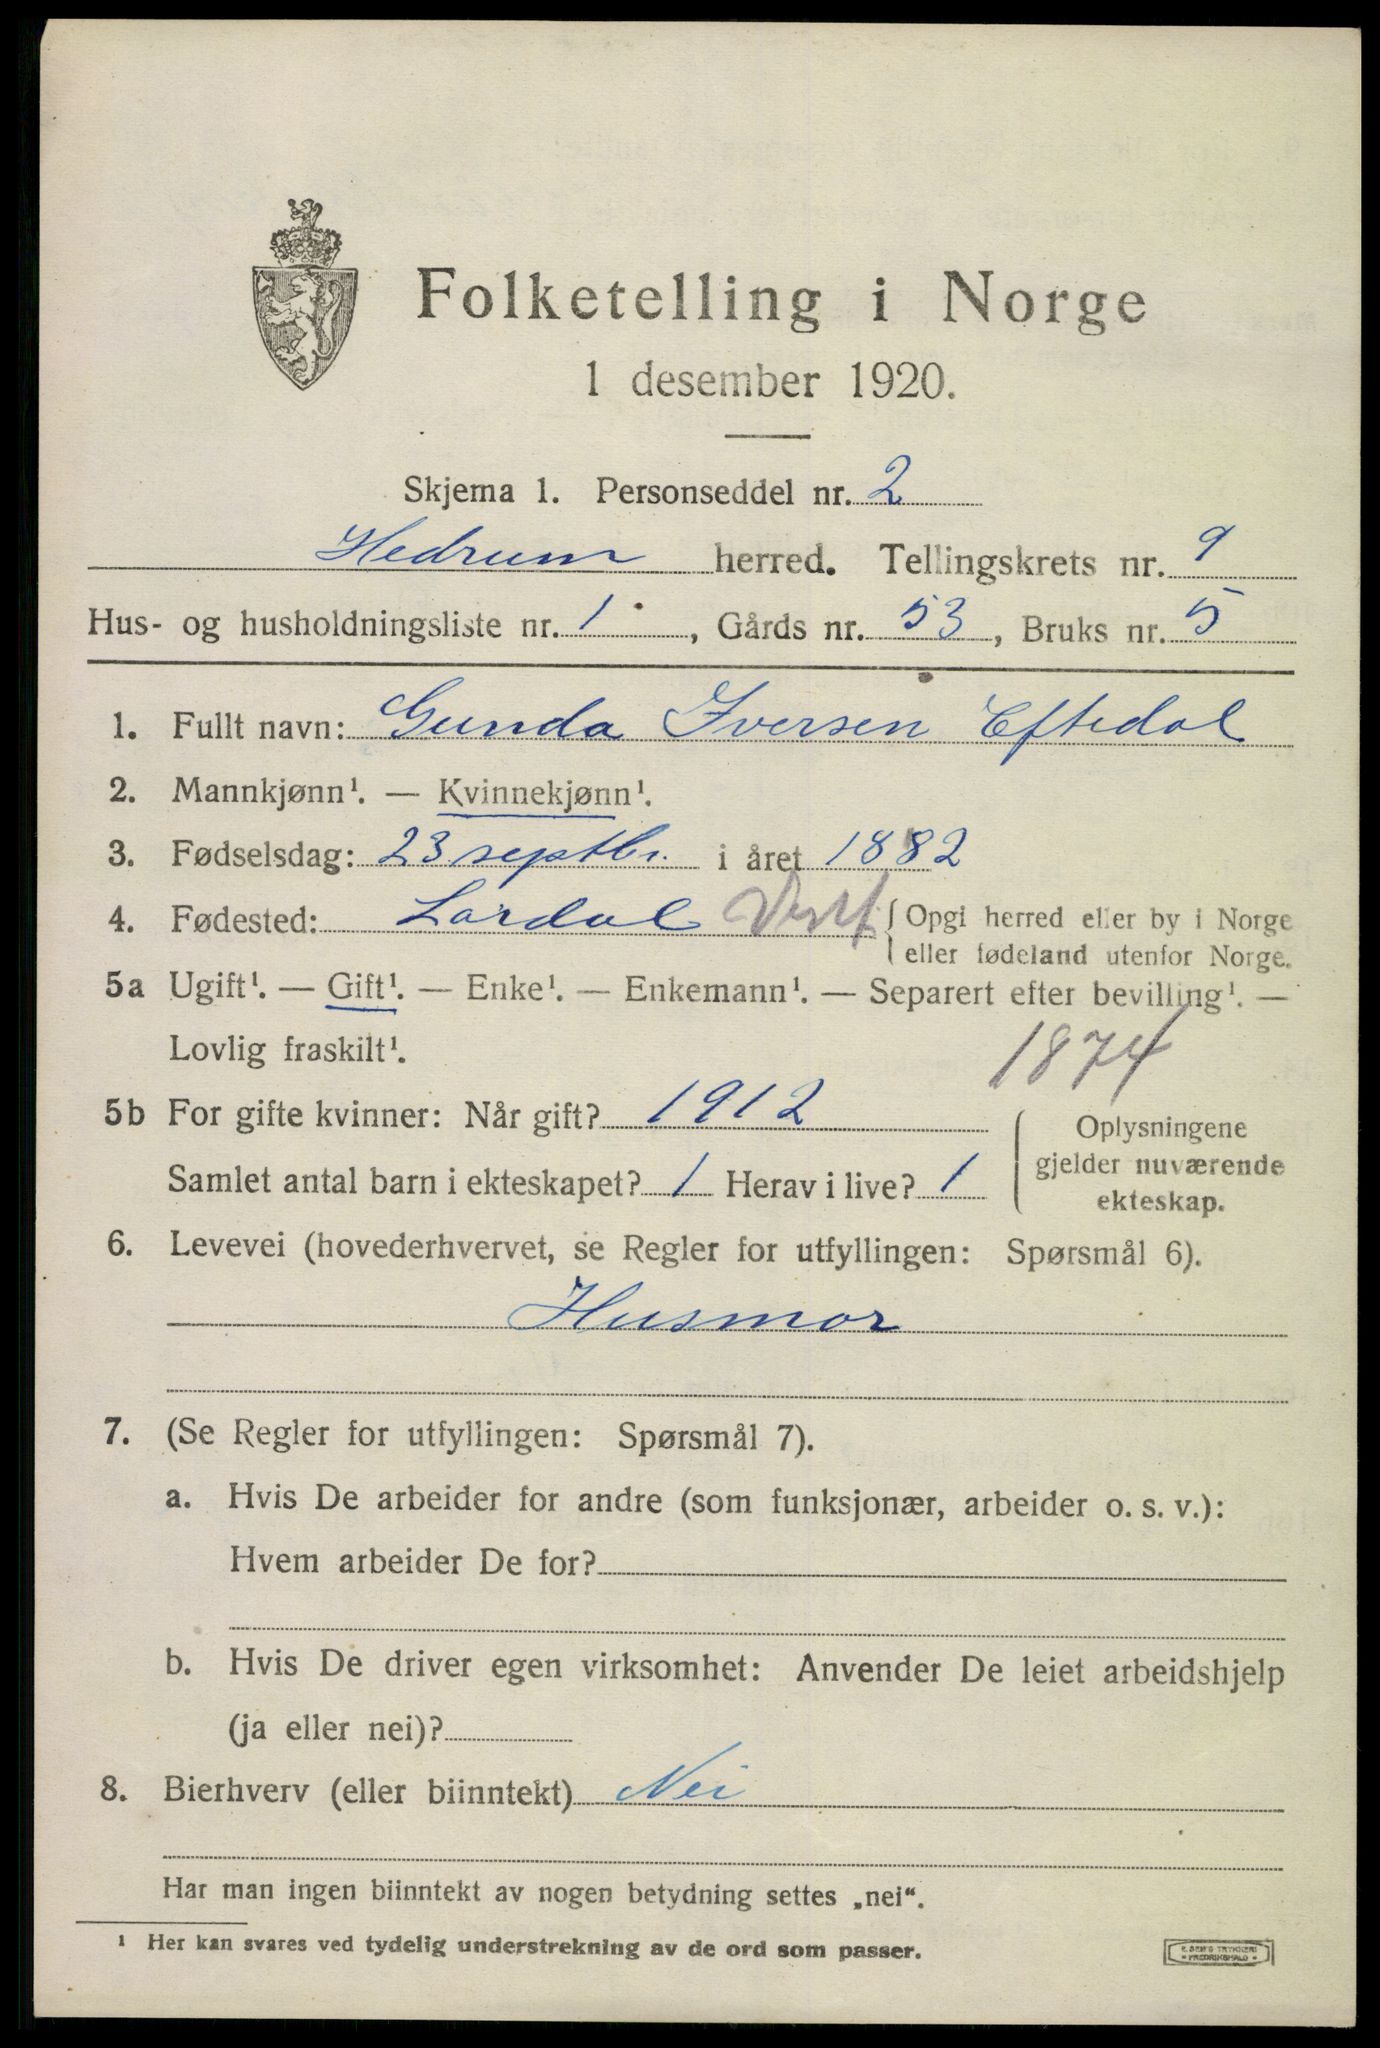 Folketelling i Norge
1 desember 1920.
Skjema 1. Personseddel nr. 2
Hedrum herred. Tellingskrets nr. 9
Hus- og husholdningsliste nr. 1, Gårds nr. 53, Bruks nr. 5
1. Fullt navn: Gunda Iversen Eftedal
2. Mannkjønn¹. — Kvinnekjønn¹.
3. Fødselsdag: 23 septbr. i året 1882
4. Fødested: Lardal Vestf { Opgi herred eller by i Norge
eller fødeland utenfor Norge.
5a Ugift¹. — Gift¹. — Enke¹. — Enkemann¹. — Separert efter bevilling¹. —
Lovlig fraskilt¹.
1874
5b For gifte kvinner: Når gift? 1912
Samlet antal barn i ekteskapet? 1 Herav i live? 1
Oplysningene
gjelder nuværende
ekteskap.
6. Levevei (hovederhvervet, se Regler for utfyllingen: Spørsmål 6).
Husmor
7. (Se Regler for utfyllingen: Spørsmål 7).
a. Hvis De arbeider for andre (som funksjonær, arbeider o. s. v.):
Hvem arbeider De for?
b. Hvis De driver egen virksomhet: Anvender De leiet arbeidshjelp
(ja eller nei)?
8. Bierhverv (eller biinntekt) Nei
Har man ingen biinntekt av nogen betydning settes „nei“.
¹ Her kan svares ved tydelig understrekning av de ord som passer.
FREDRIKSHALD